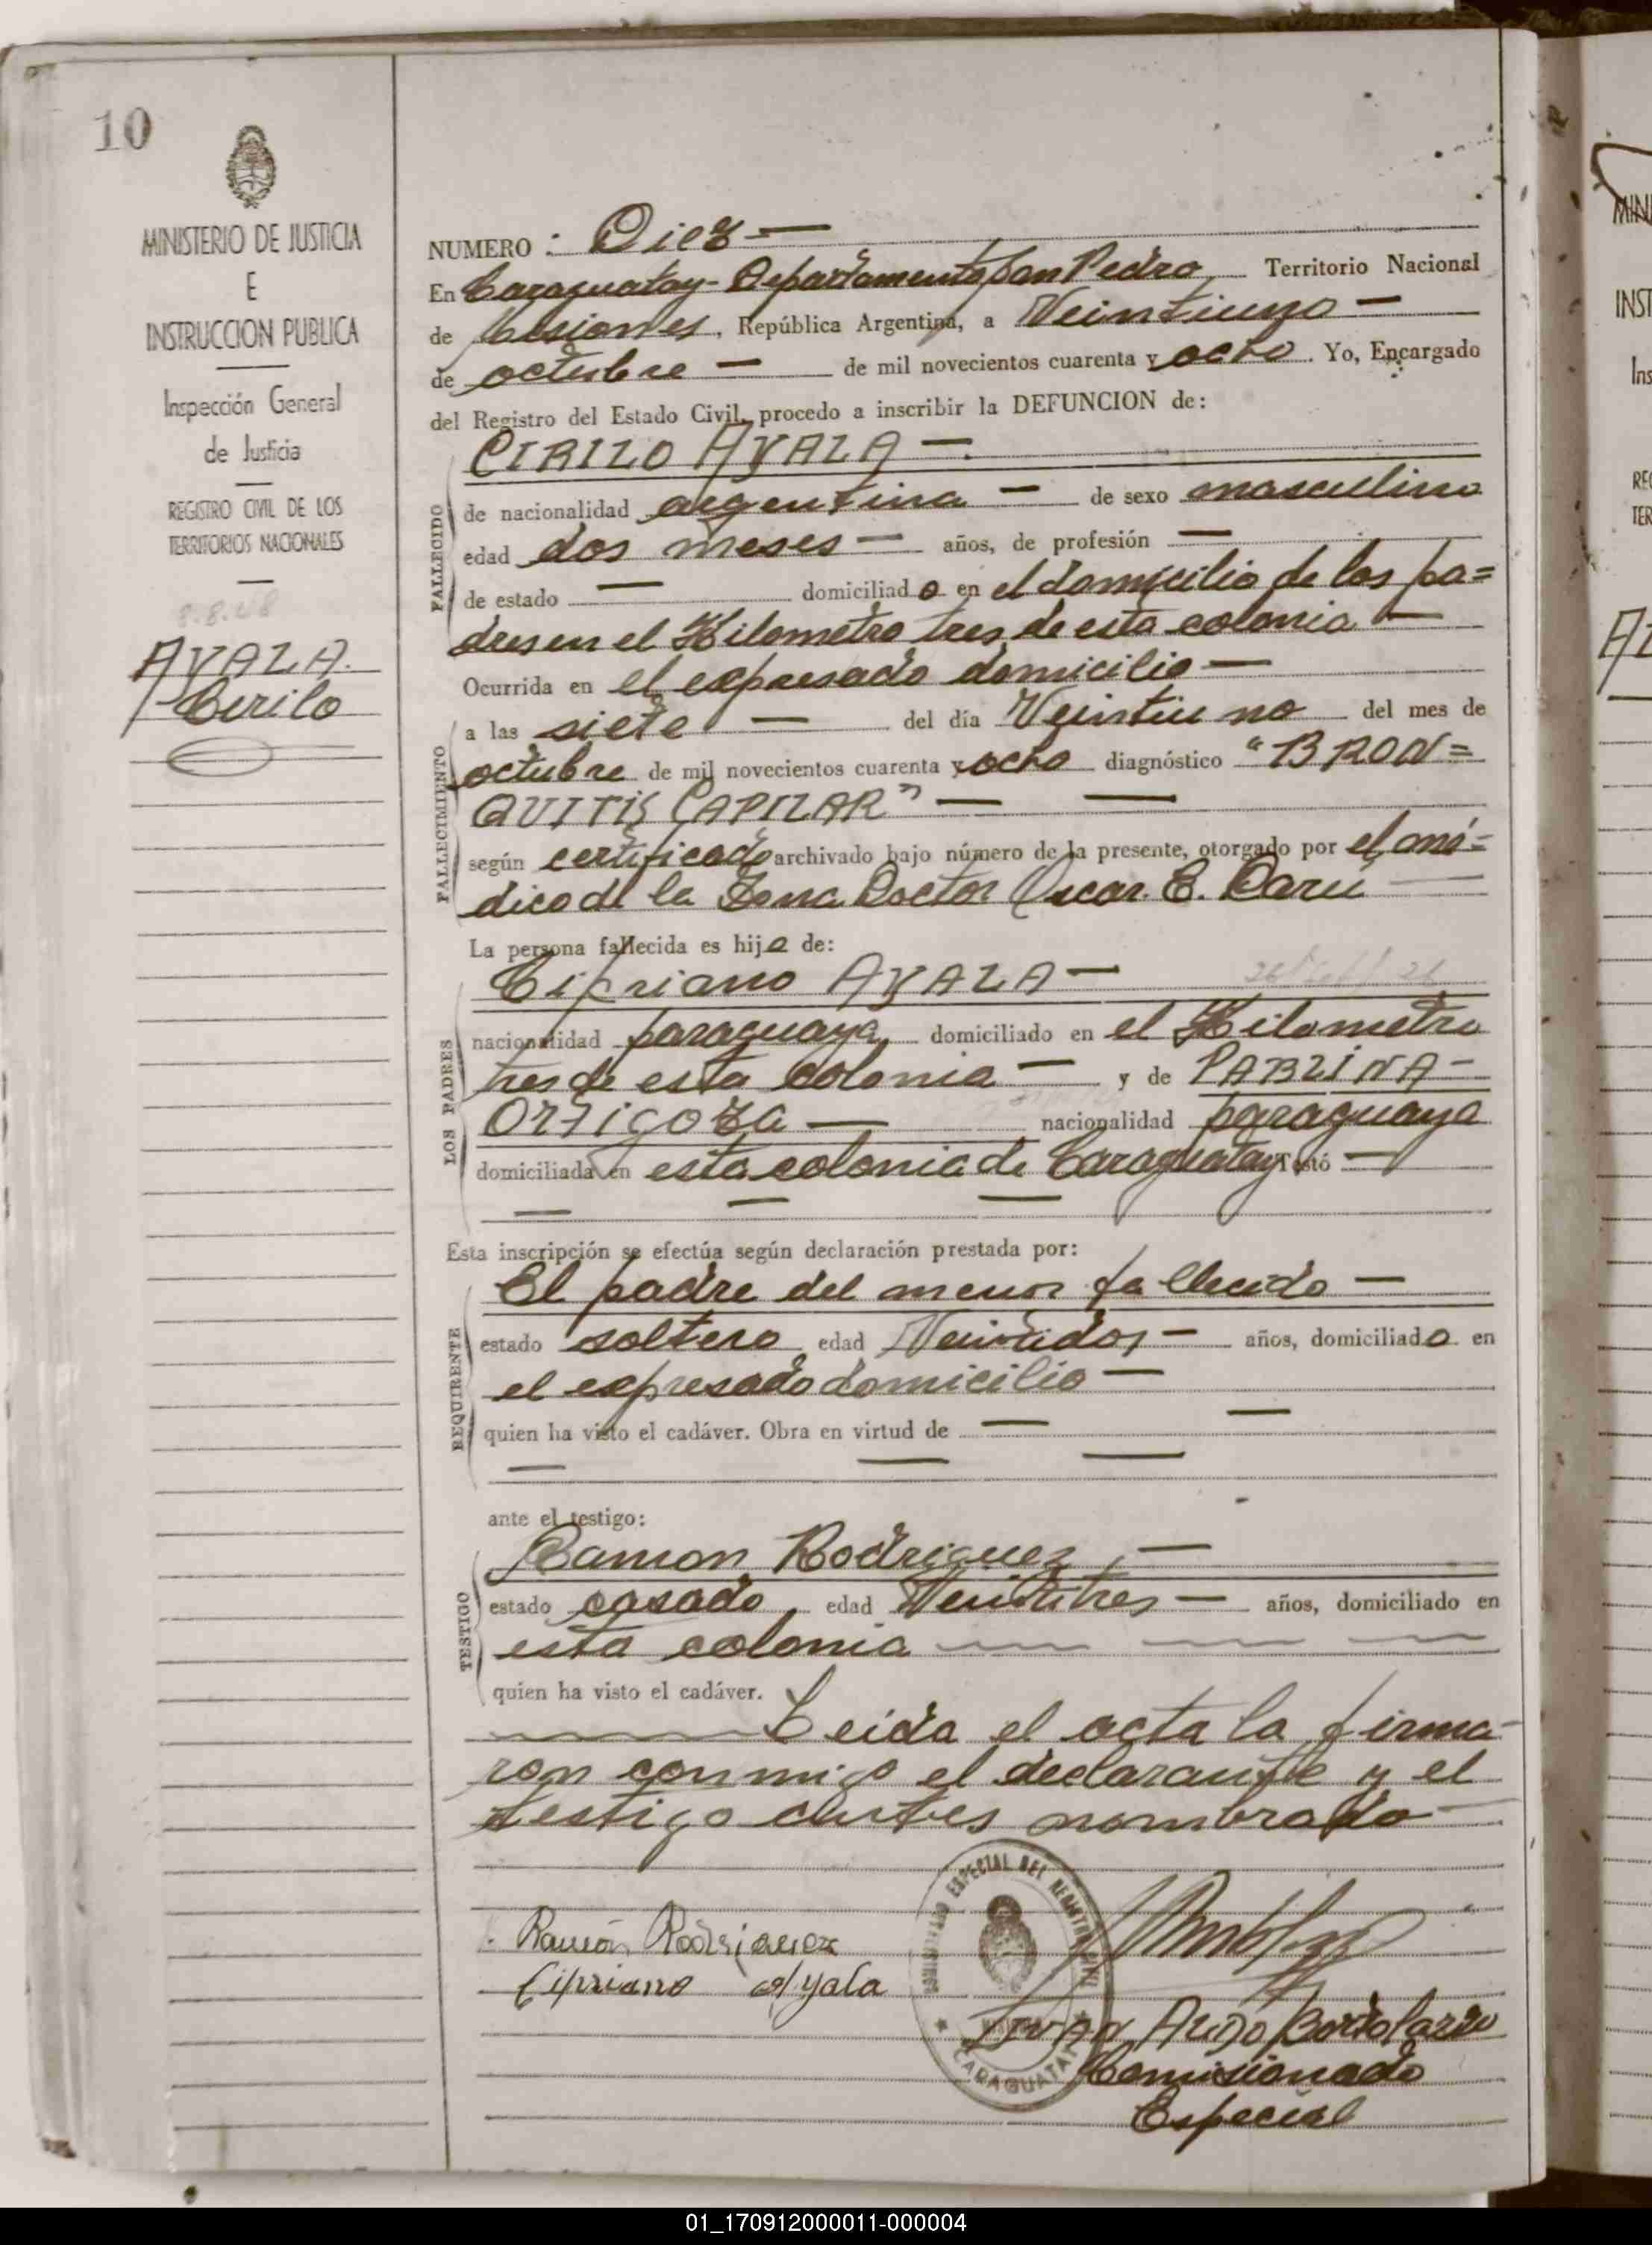 10
MINISTERIO DE JUSTICIA
E
INSTRUCCION PUBLICA
Inspección General
de Justicia
REGISTRO CIVIL DE LOS
TERRITORIOS NACIONALES
8.8.48
AYALA.
Cirilo
NUMERO: Diez —
En Caraguatay - Departamento San Pedro Territorio Nacional
de Misiones, República Argentina, a Veintiuno —
de octubre — de mil novecientos cuarenta y ocho. Yo, Encargado
del Registro del Estado Civil, procedo a inscribir la DEFUNCION de:
CIRILO AYALA —.
FALLECIDO
de nacionalidad argentina — de sexo masculino
edad dos meses — años, de profesión —
de estado — domiciliado en el domicilio de los pa=
dres en el Kilometro tres de esta colonia —
Ocurrida en el expresado domicilio —
FALLECIMIENTO
a las siete — del día Veintiuno del mes de
octubre de mil novecientos cuarenta y ocho diagnóstico "BRON=
QUITIS CAPILAR" — —
según certificado archivado bajo número de la presente, otorgado por el mé=
dico de la Zona Doctor Oscar. C. Darú
La persona fallecida es hijo de:
Cipriano AYALA —
LOS PADRES
nacionalidad paraguaya domiciliado en el Kilometro
tres de esta colonia — y de PABLINA —
Ortigoza — nacionalidad paraguaya
domiciliada en esta colonia de Caraguatay Testó —
— — —
Esta inscripción se efectúa según declaración prestada por:
El padre del menor fallecido —
REQUIRENTE
estado soltero edad Veintidos — años, domiciliado en
el expresado domicilio —
quien ha visto el cadáver. Obra en virtud de — —
— — —
ante el testigo:
Ramon Rodriguez, —
TESTIGO
estado casado, edad Veintitres — años, domiciliado en
esta colonia
quien ha visto el cadáver.
Leida el acta la firma
ron conmigo el declarante y el
testigo antes nombrado
Ramón Rodriguez
Cipriano Ayala
COMISARIADO ESPECIAL DEL REGISTRO CIVIL
CARAGUATAY
Comisionado
Especial
01_170912000011-000004